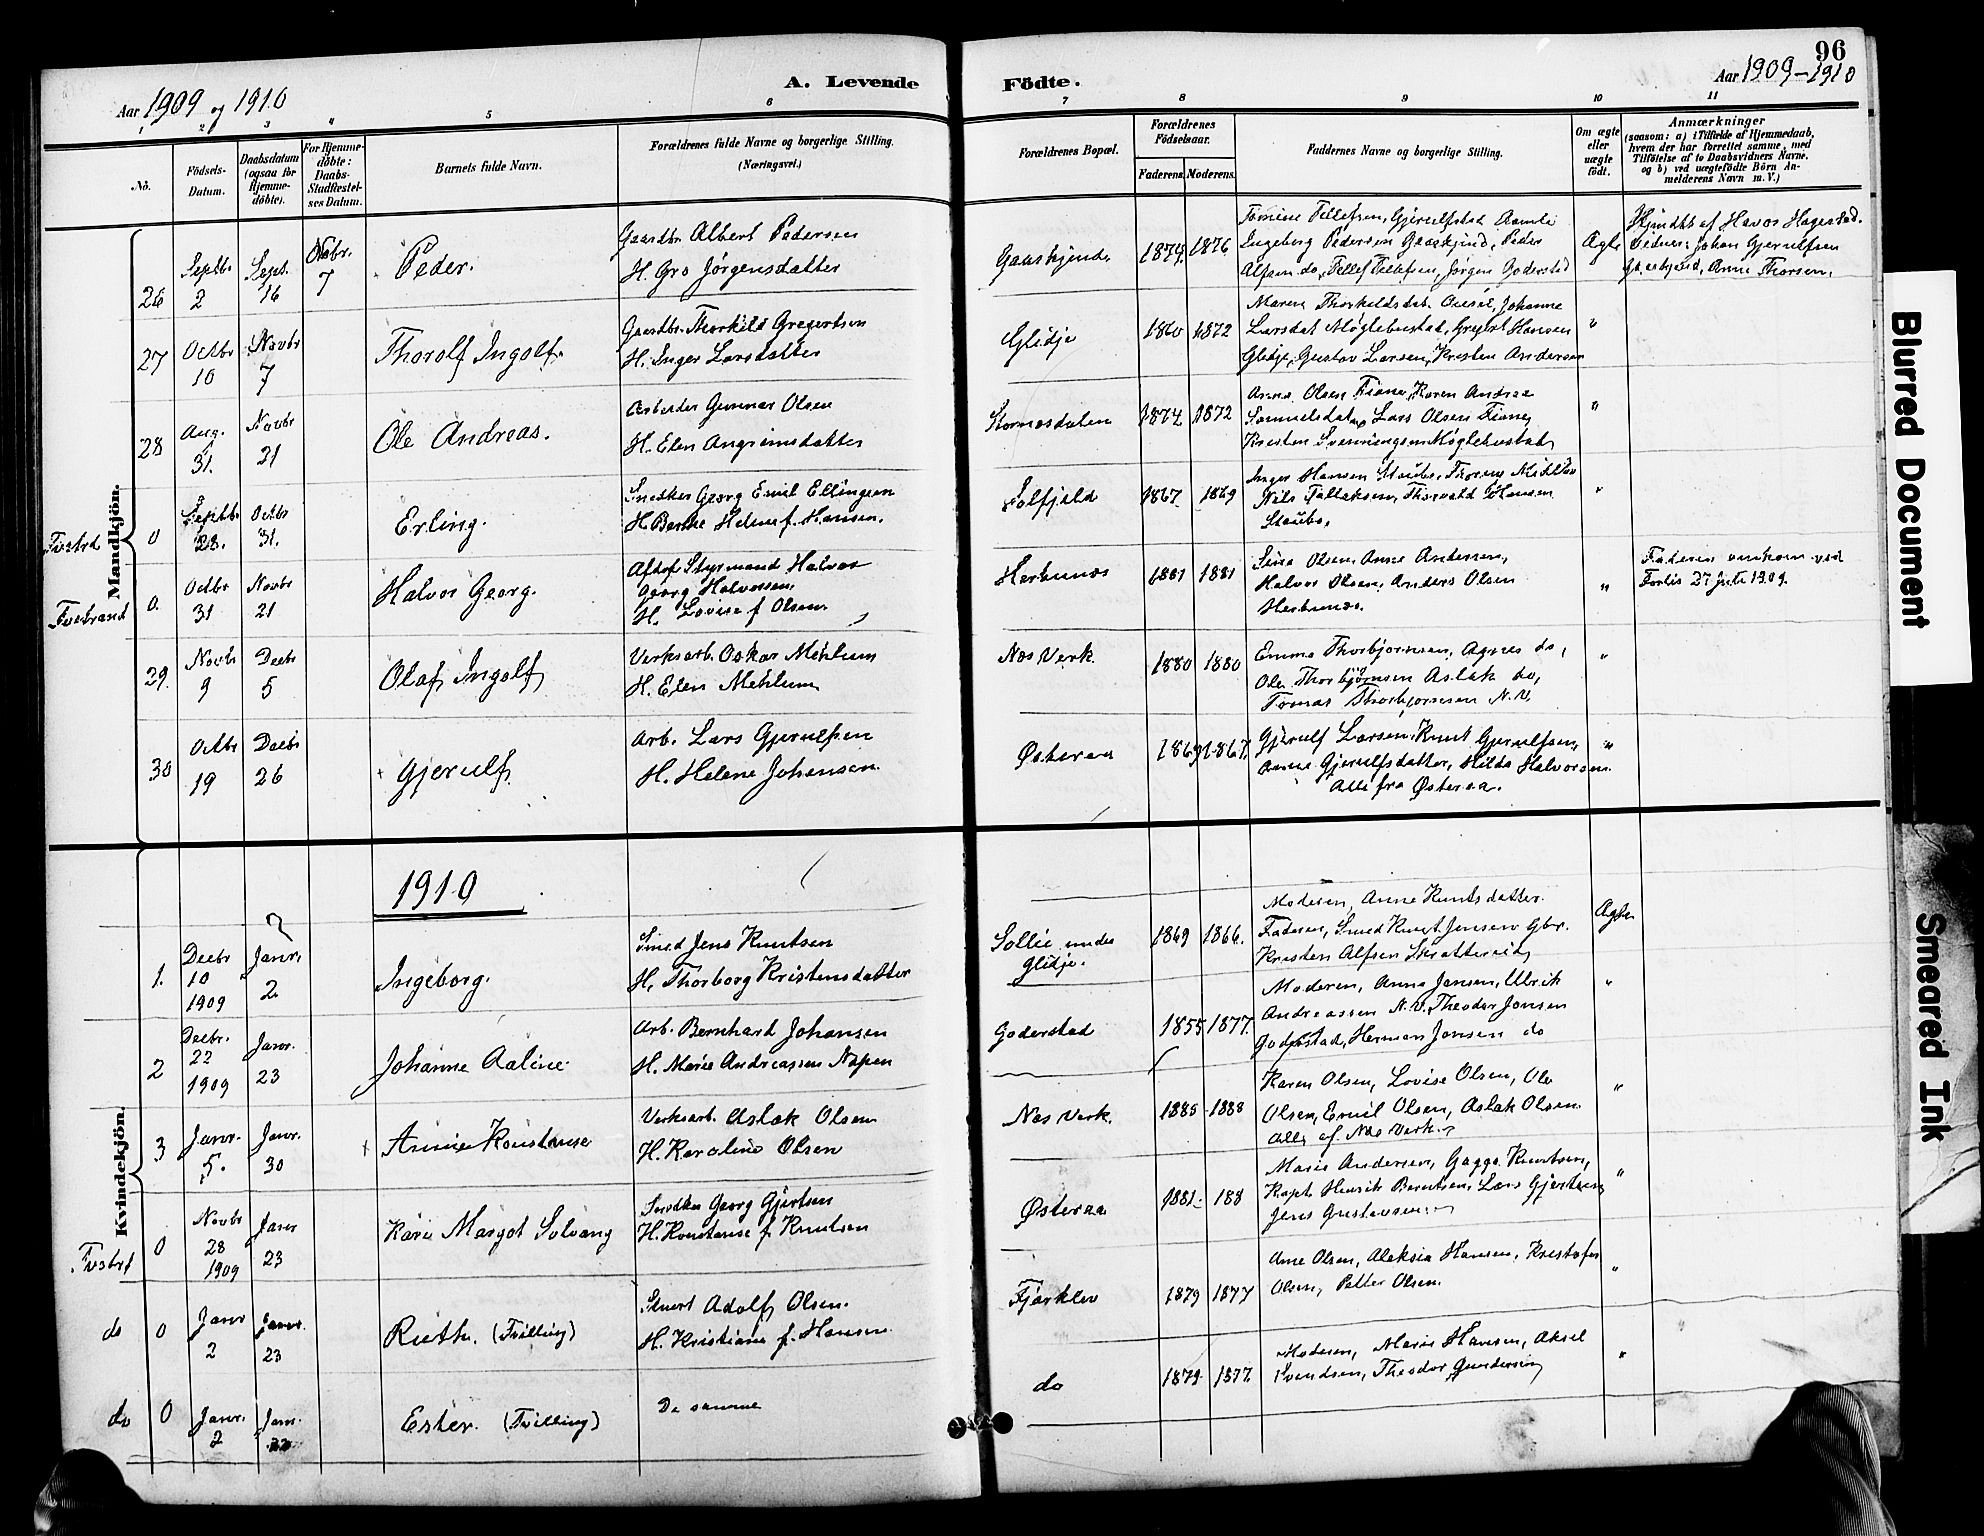 96
A. Levende Födte.
Aar 1909 og 1910
Aar 1909-1910
1 2 3 4 5 6 7 8 9 10 11
No.
Födsels-Datum.
Daabsdatum (ogsaa for Hjemme-döbte).
For Hjemme-döbte: Daabs-Stadfæstel-ses Datum.
Barnets fulde Navn.
Forældrenes fulde Navne og borgerlige Stilling.
(Næringsvei.)
Forældrenes Bopæl.
Forældrenes Födselsaar.
Faderens. Moderens.
Faddernes Navne og borgerlige Stilling.
Om ægte eller uægte födt.
Anmærkninger
(saasom: a) i Tilfælde af Hjemmedaab,
hvem der har forrettet samme, med
Tilföielse af to Daabsvidners Navne,
og b) ved uægtefödte Börn An-
melderens Navn m. V.)
Mandkjön.
26 Septbr 2 Sept. 16 Novbr. 7
Peder.
Gaardbr. Albert Pedersen
H. Gro Jörgensdatter
1874 1876
Ingeborg Pedersen Gaaskjind, Peder
Alfsen do, Tellef Tellefsen, Jörgen Goderstad
Ægte
Hjemdbt af Havor Hagestad.
Johan Gjerulfsen
Anne Thorsen.
27 Octbr 10 Novbr 7
Thorolf Ingolf.
Gaardbr. Thorkild Gregertsen
H. Inger Larsdatter
Glidje
1860 1872
Maren Thorkildsdat. Johanne
Larsdat Møglebustad, Gregert Hansen
Glidje, Gustav Larsen, Kristen Andersen
"
28 Aug. 31. Novbr 21
Ole Andreas.
Arbeider Gunnar Olsen
H. Elen Angrimsdatter
1874 1872
Anna Olsen Fiane, Karen Andrea
Samuelsdat, Lars Olsen Fiane,
Kristen Møglebustad
"
0 Septbr 28. Octbr 31.
Erling.
Snedker Georg Emil Ellingsen
Hansen.
Solfjeld
1867 1869
Inger Hansen Staubø,
Nils Tallaksen, Thorvald Hansen
Staubø,
"
Tvebrand 0. Octbr 31 Novbr 21
Halvor Georg.
Styrmand Halvor
Georg Halvorsen
H. Lovise f Olsen.
1881 1881
Sina Olsen, Anne Andersen,
Halvor Olsen, Anders Olsen
"
Faderen omkom ved
Forlis 27 juli 1909.
29. Novbr 9 Decbr 5
Olaf Ingolf
Verksarb. Oskar Mehlum
H. Elen Mehlum
Næs Verk.
1880 1880
Emma Thorbjørnsen, Agnes do,
Ole Thorbjørnsen Aslak do,
Tomas Thorbjørnsen N. V.
"
30 Octbr 19 Decbr 26
Gjerulf
Arb. Lars Gjerulfsen
H. Helene Johansen.
Østeraa
1869 1867.
Gjerulf Larsen, Knut Gjerulfsen,
Anne Gjerulfsdatter, Hilda Halvorsen.
Alle fra Østeraa.
"
1910
Kvindekjön.
1. Decbr 10 1909 Janr. 2
Ingeborg.
Smed Jens Knutsen
H. Thorborg Kristensdatter
Sollie under
Glidje.
1869 1866.
Moderen, Anne Knutsdatter.
Faderen, Smed Knut Jensen Gbr.
Kristen Alfsen Skrattereid
Ægte
2 Decbr. 22 1909 Janr. 23
Johanne Aaline
Arb. Bernhard Johansen
H. Marie Andreassen
Goderstad
1855 1877.
Moderen, Anna Jensen, Ulrik
Andreassen N. V. Theodor Jensen
Goderstad, Herman Jensen do
"
3 Janr. 5. Janr. 30
Anne Konstanse
Verksarb. Aslak Olsen
H. Karoline Olsen
Næs Verk.
1885 1888
Karen Olsen, Lovise Olsen, Ole
Olsen, Emil Olsen, Aslak Olsen.
Alle af Næs Verk.
"
0 Novbr 28 1909 Janr 23
Kari Margot Solvang
Snedker Georg Gjertsen
H. Konstanse f Knutsen
Østeraa
1881 188
Marie Andersen, Gagga Knutsen,
Kapt. Henrik Berntsen, Lars Gjertsen,
Jens Gustavsen.
"
do 0 Janr 2 Janr. 23
Ruth. (Tvilling)
Stuert Adolf Olsen.
H. Kristiane f. Hansen
1879 1877
Ane Olsen, Aleksia Hansen, Kristofer
Olsen, Petter Olsen.
"
do 0 Janr. 2 Janr. 23
Ester. (Tvilling)
De samme
do
1879 1877
Moderen, Marie Hansen, Aksel
Svendsen, Theodor Gundersen
"
Blurred Document
Smeared Ink